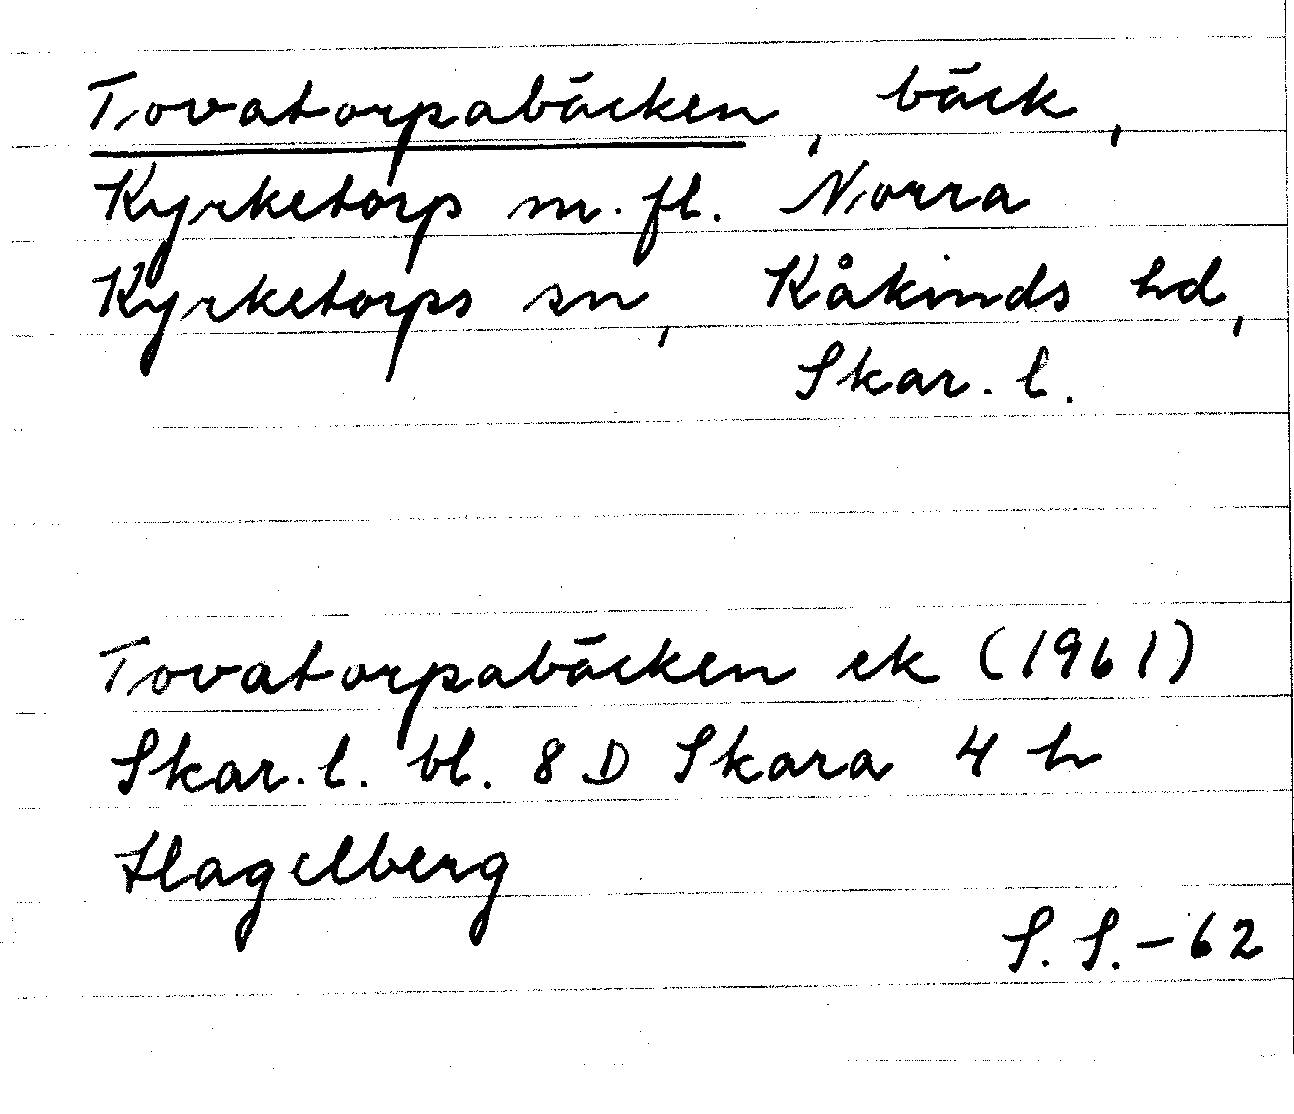 Tovatorpabäcken, bäck,
Kyrketorp m.fl. Norra
Kyrketorps sn, Kåkinds hd,
Skar. l.
Tovatorpabäcken ek (1961)
Skar. l. bl. 8 D Skara 4 h
Hagelberg
S. S. - 62